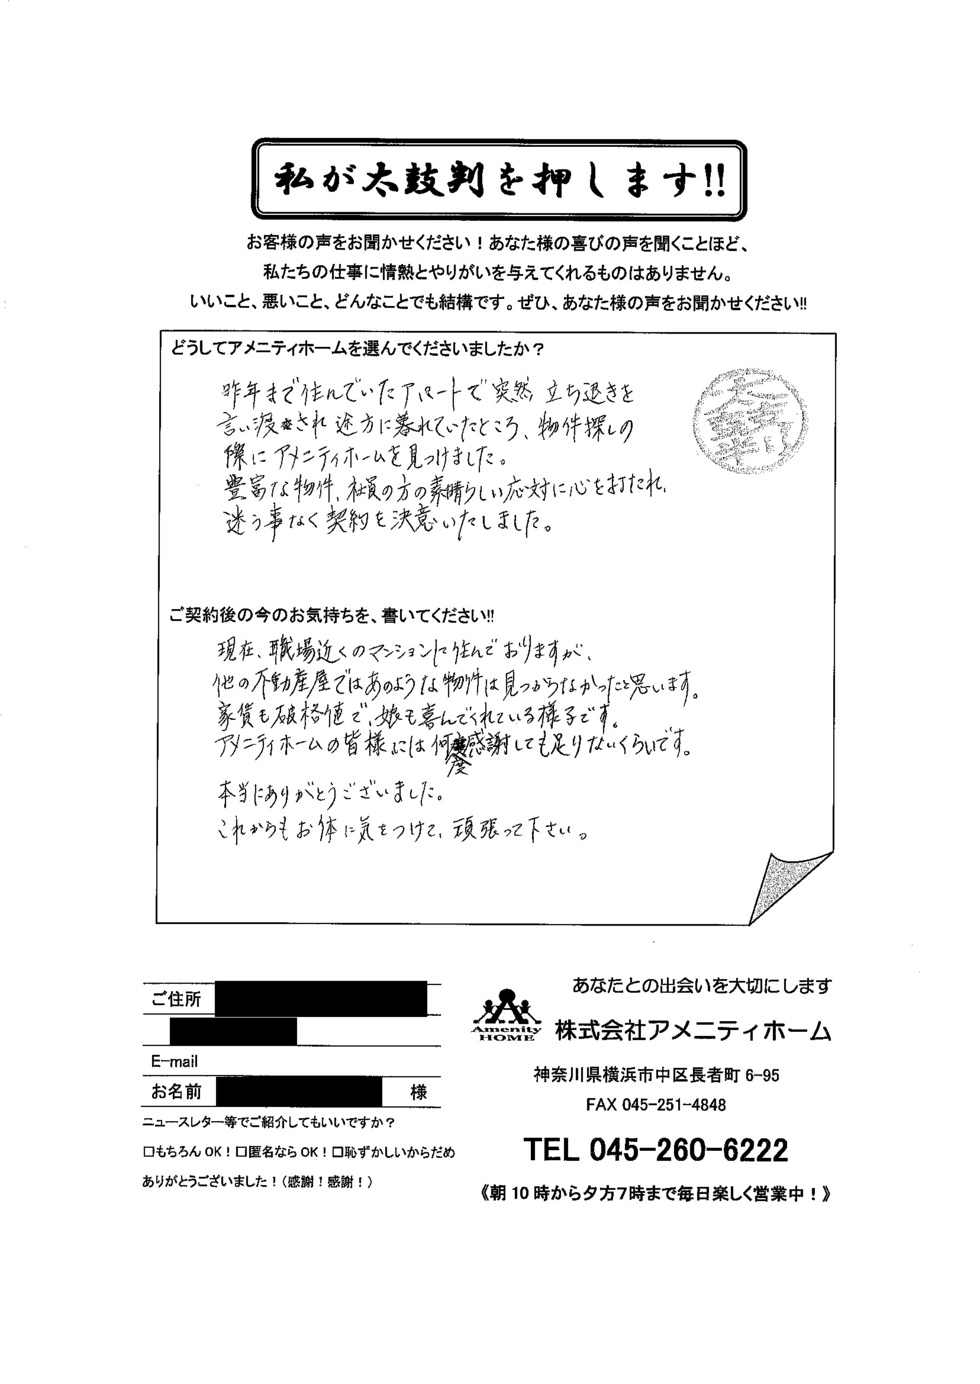 私が太鼓判を押します!!
お客様の声をお聞かせください！あなた様の喜びの声を聞くことほど、
私たちの仕事に情熱とやりがいを与えてくれるものはありません。
いいこと、悪いこと、どんなことでも結構です。ぜひ、あなた様の声をお聞かせください!!
どうしてアメニティホームを選んでくださいましたか？
昨年まで住んでいたアパートで突然立ち退きを
言い渡され途方に暮れていたところ、物件探しの
際にアメニティホームを見つけました。
豊富な物件、社員の方の素晴らしい応対に心を打たれ、
迷う事なく契約を決意いたしました。
太鼓判
ご契約後の今のお気持ちを、書いてください!!
現在、職場近くのマンションに住んでおりますが、
他の不動産屋ではあのような物件は見つからなかったと思います。
家賃も破格値で、娘も喜んでくれている様子です。
アメニティホームの皆様には何度感謝しても足りないくらいです。
本当にありがとうございました。
これからもお体に気をつけて、頑張って下さい。
ご住所
E-mail
お名前 様
ニュースレター等でご紹介してもいいですか？
□もちろんOK！□匿名ならOK！□恥ずかしいからだめ
ありがとうございました！（感謝！感謝！）
あなたとの出会いを大切にします
Amenity
HOME
株式会社アメニティホーム
神奈川県横浜市中区長者町6-95
FAX 045-251-4848
TEL 045-260-6222
《朝10時から夕方7時まで毎日楽しく営業中！》